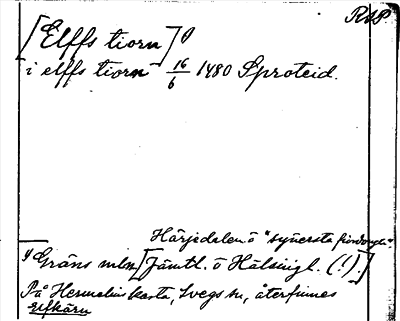 RAP.
[Elffs tiorn] 1)
i elffs tiorn 16/6 1480 Sproteid.
Härjedalen ö "synersta
1) Gräns mlm [Jämtl. ö Hälsingl. (!).]
På Hermelins karta, Svegs sn, återfinnes
Elfkärn